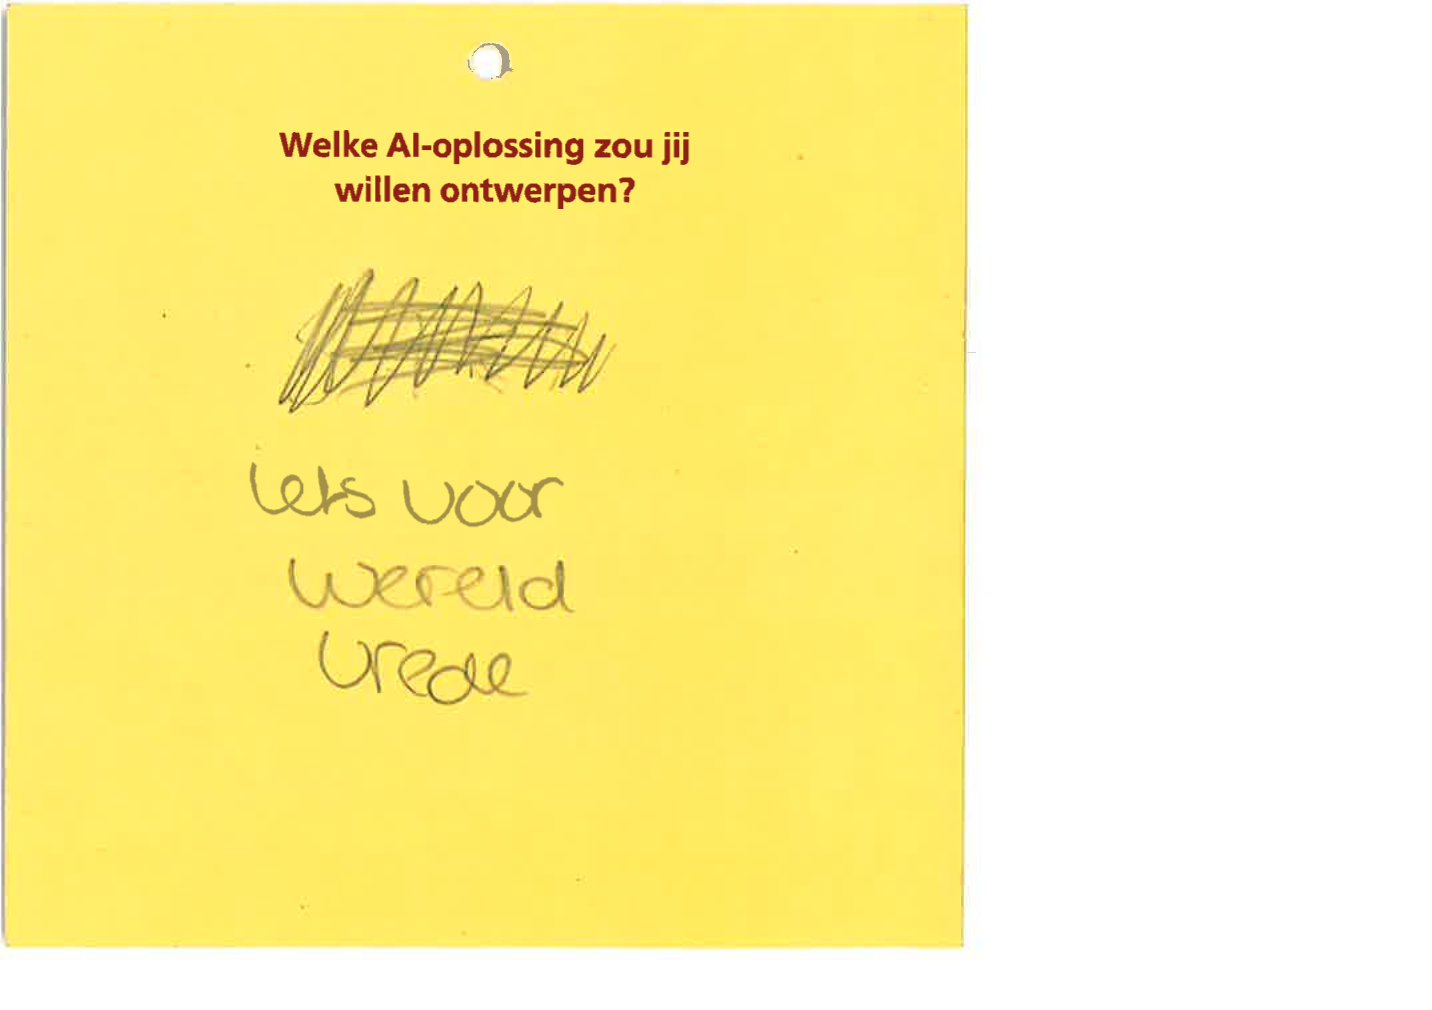 Welke AI-oplossing zou jij
willen ontwerpen?
iets voor
wereld
vrede